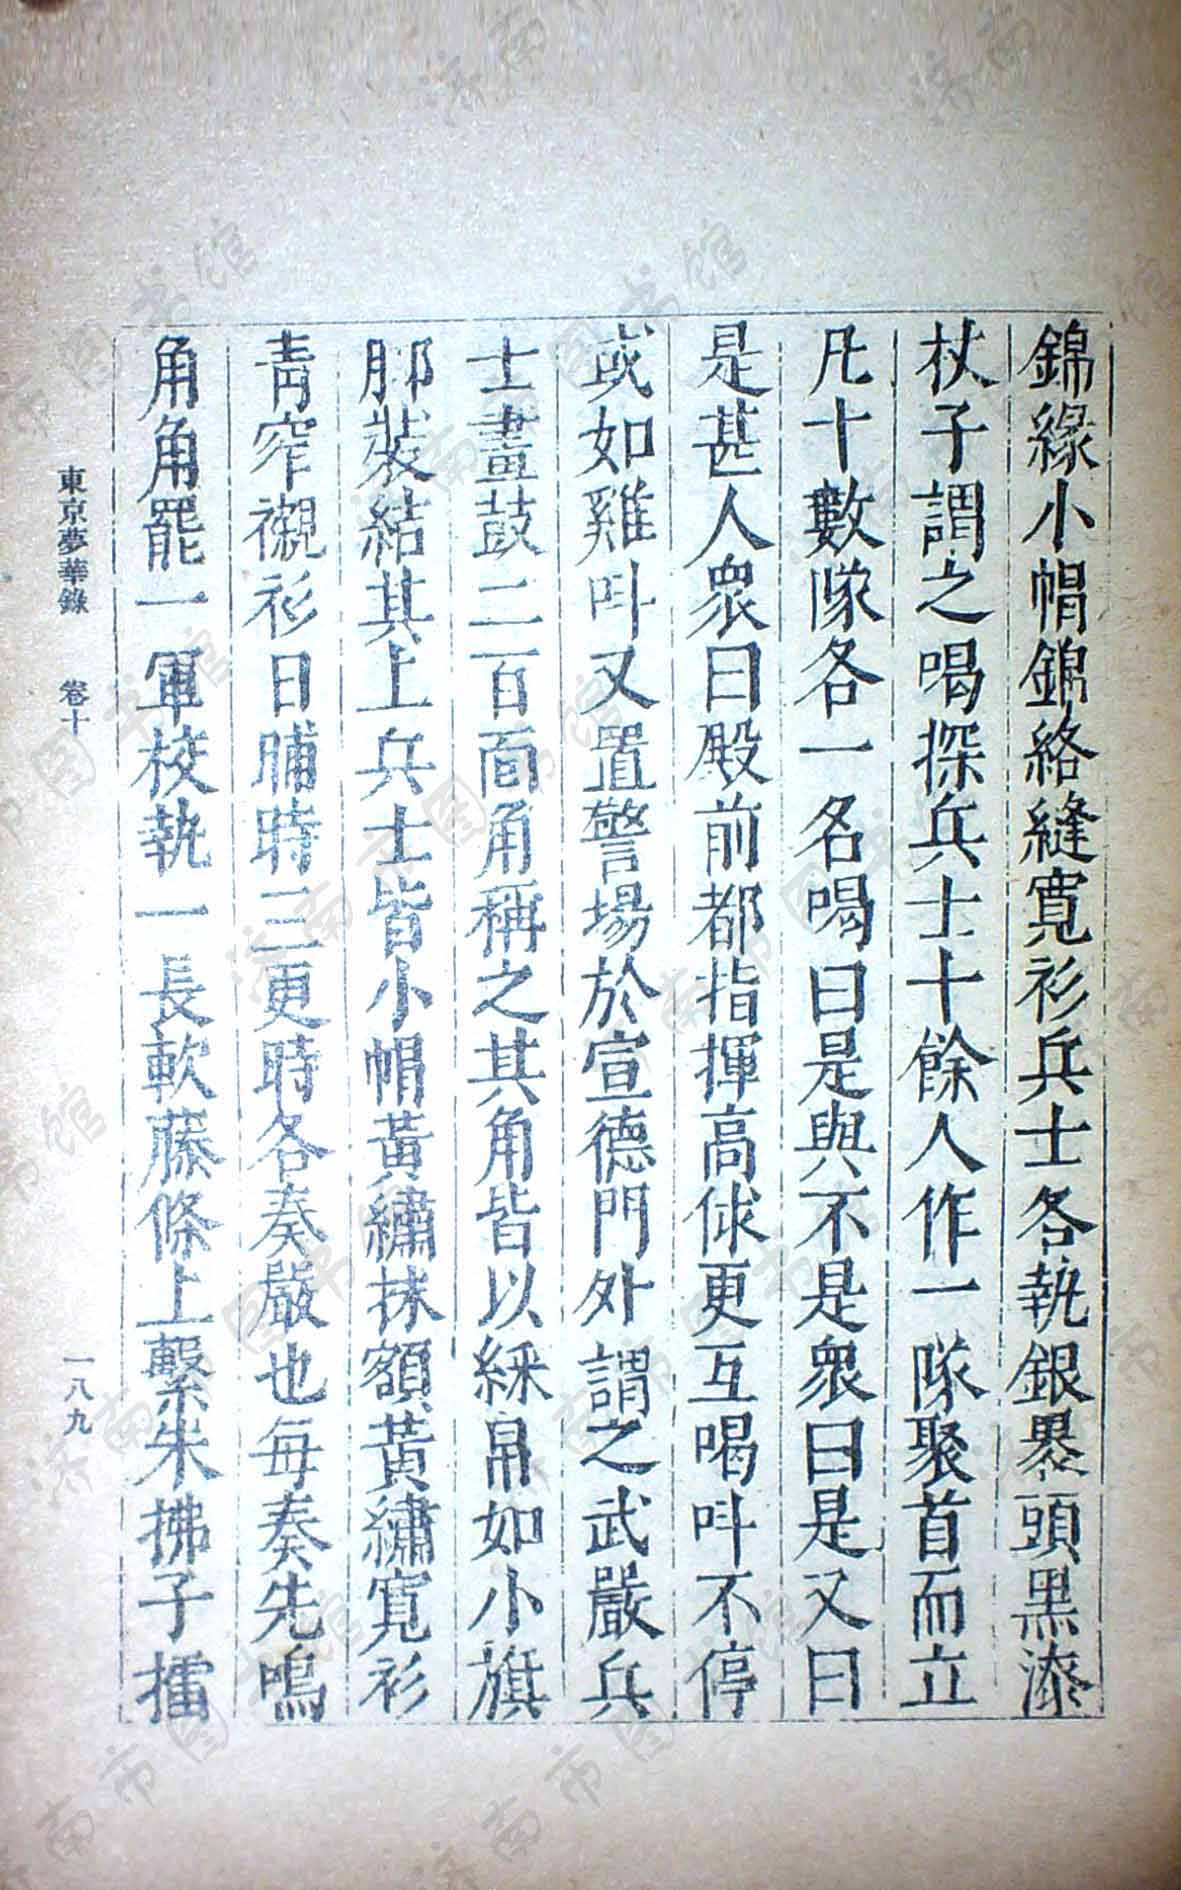 錦緣小帽錦絡縫寬衫兵士各執銀褁頭黑漆
杖子謂之喝探兵士十餘人作一隊聚首而立
凡十數隊各一名喝曰是與不是衆曰是又曰
是甚人衆曰殿前都指揮高俅更互喝呌不停
或如雞呌又置警場於宣德門外謂之武嚴兵
士畫鼓二百面角稱之其角皆以綵帛如小旗
脚裝結其上兵士皆小帽黃繡抹額黃繡寬衫
青窄襯衫日晡時三更時各奏嚴也每奏先鳴
角角罷一軍校執一長軟藤條上繫朱拂子擂
東京夢華錄 卷十 一八九
济南市图书馆